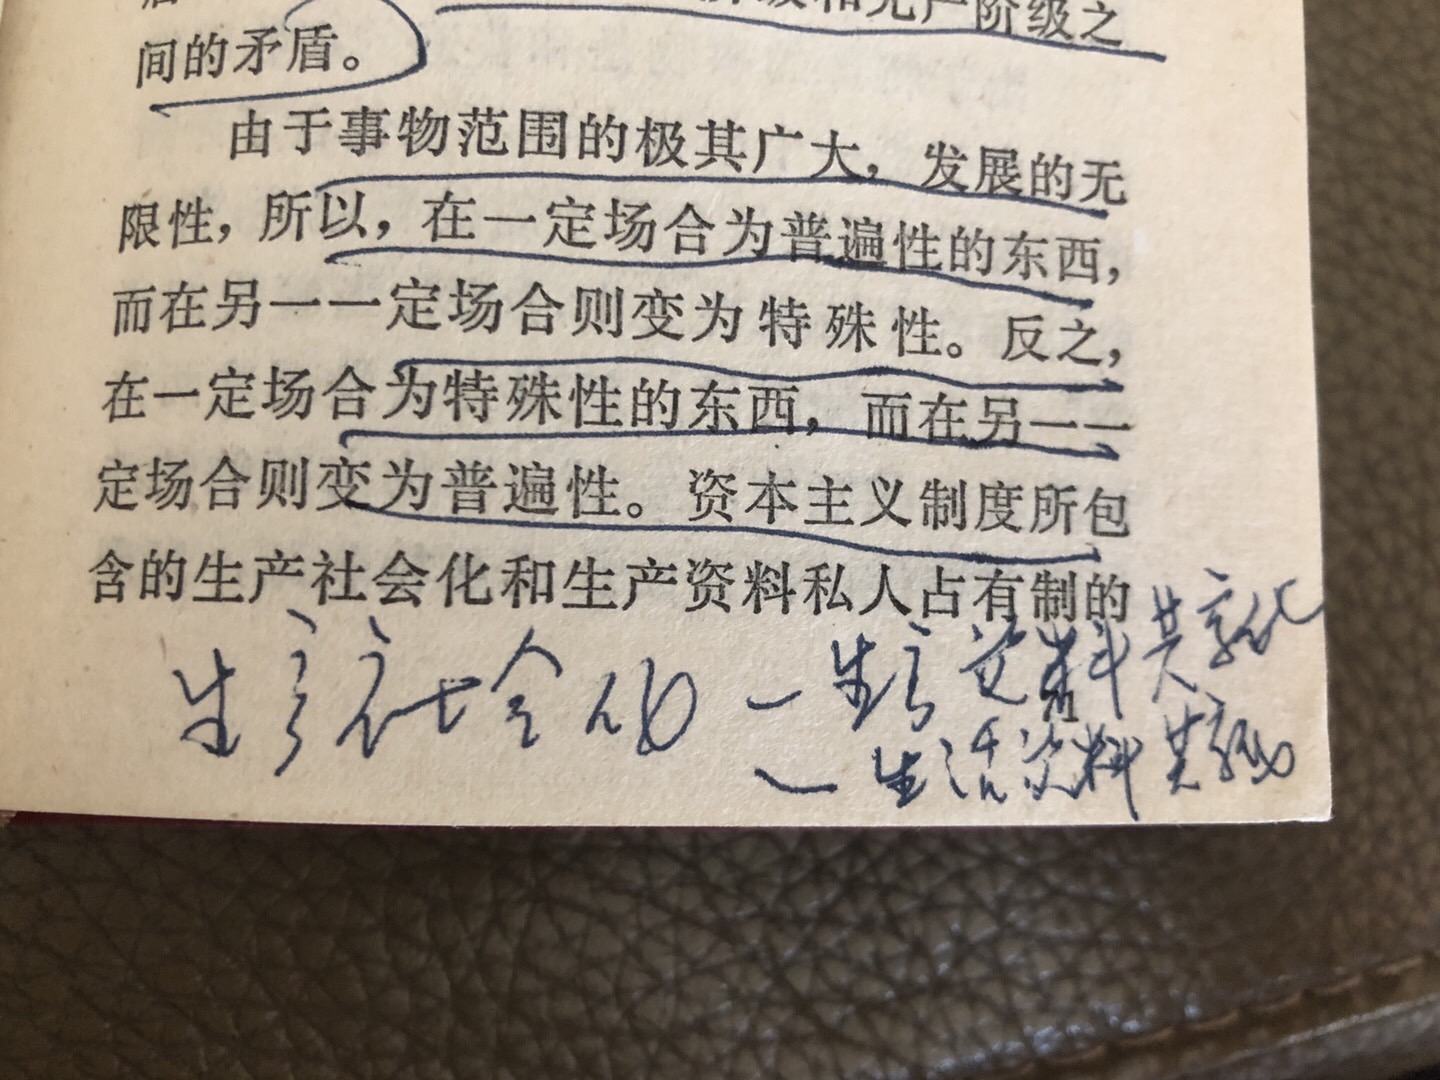 级和无产阶级之
间的矛盾。
由于事物范围的极其广大，发展的无
限性，所以，在一定场合为普遍性的东西，
而在另一一定场合则变为特殊性。反之，
在一定场合为特殊性的东西，而在另一一
定场合则变为普遍性。资本主义制度所包
含的生产社会化和生产资料私人占有制的
生产社会化
生产资料共享化
生活资料共享化